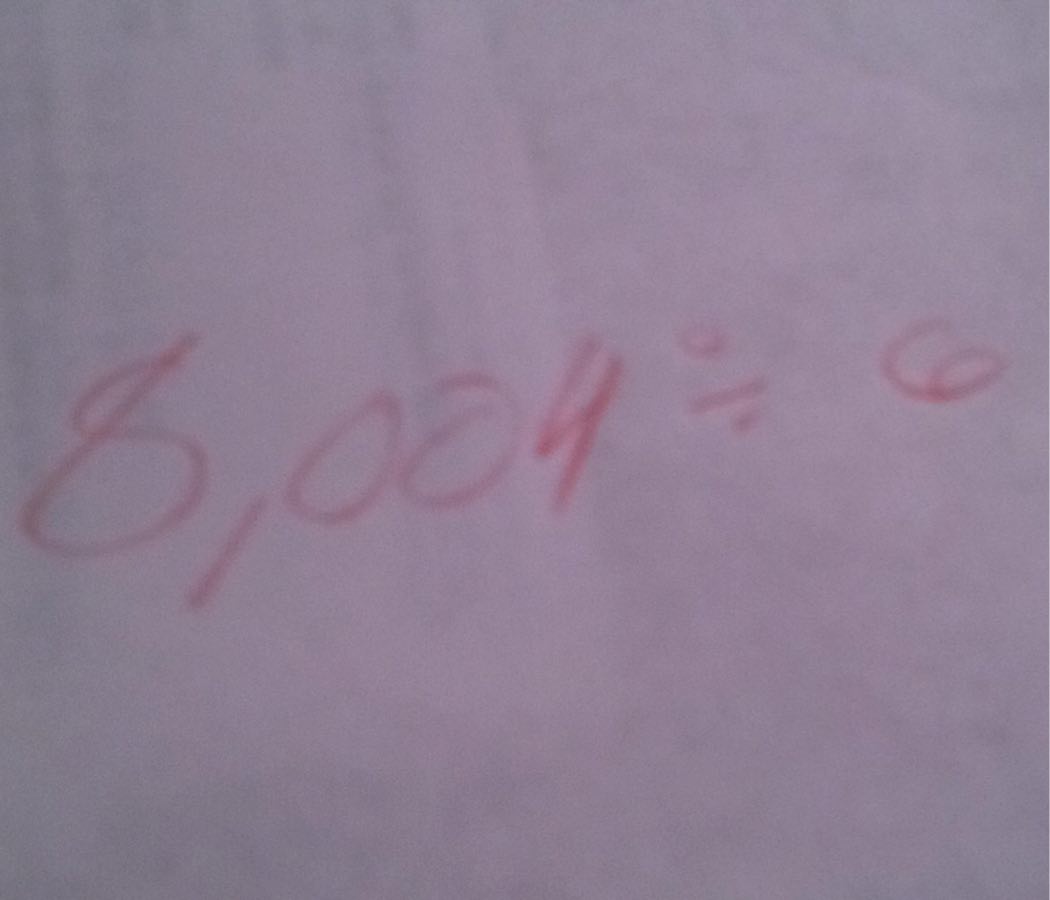 8,004 ÷ 6